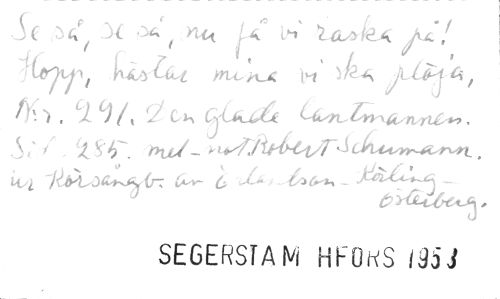 Se så, se så, nu få vi raska på!
Hopp, hästar mina vi ska plöja,
N:r. 291. Den glade lantmannen.
Sid. 285. mel-not. Robert Schumann.
ur Körsångb. av Körling-
Österberg.
SEGERSTAM HFORS 1953